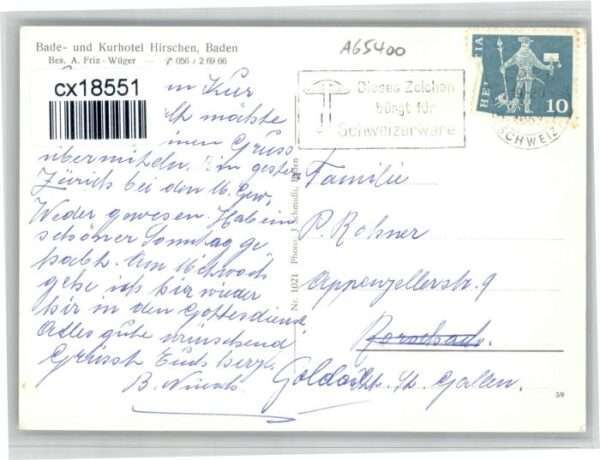 Bade- und Kurhotel Hirschen, Baden
Bes. A. Friz - Wüger — ✆ 056 / 2 69 66
A65400
cx18551
in Kur
ich möchte
einen Gruss
übermiteln. Bin gester
Zürich bei den
Weder gewesen. Hab ein
schöner Sonntag ge
habt. Am Mitwoch
gehe ich hir wieder
hir in den Gottesdienst
Alles gute wünschend
Grüsst Euch herzl.
B.
Dieses Zeichen
bürgt für
Schweizerware
HELVETIA
10
SCHWEIZ
Nr. 1021 Photo: J. Schmidli, Baden
Familie
P. Rohner
Appenzellerstr. 9
Rorschach.
Goldach St. Gallen.
5/9